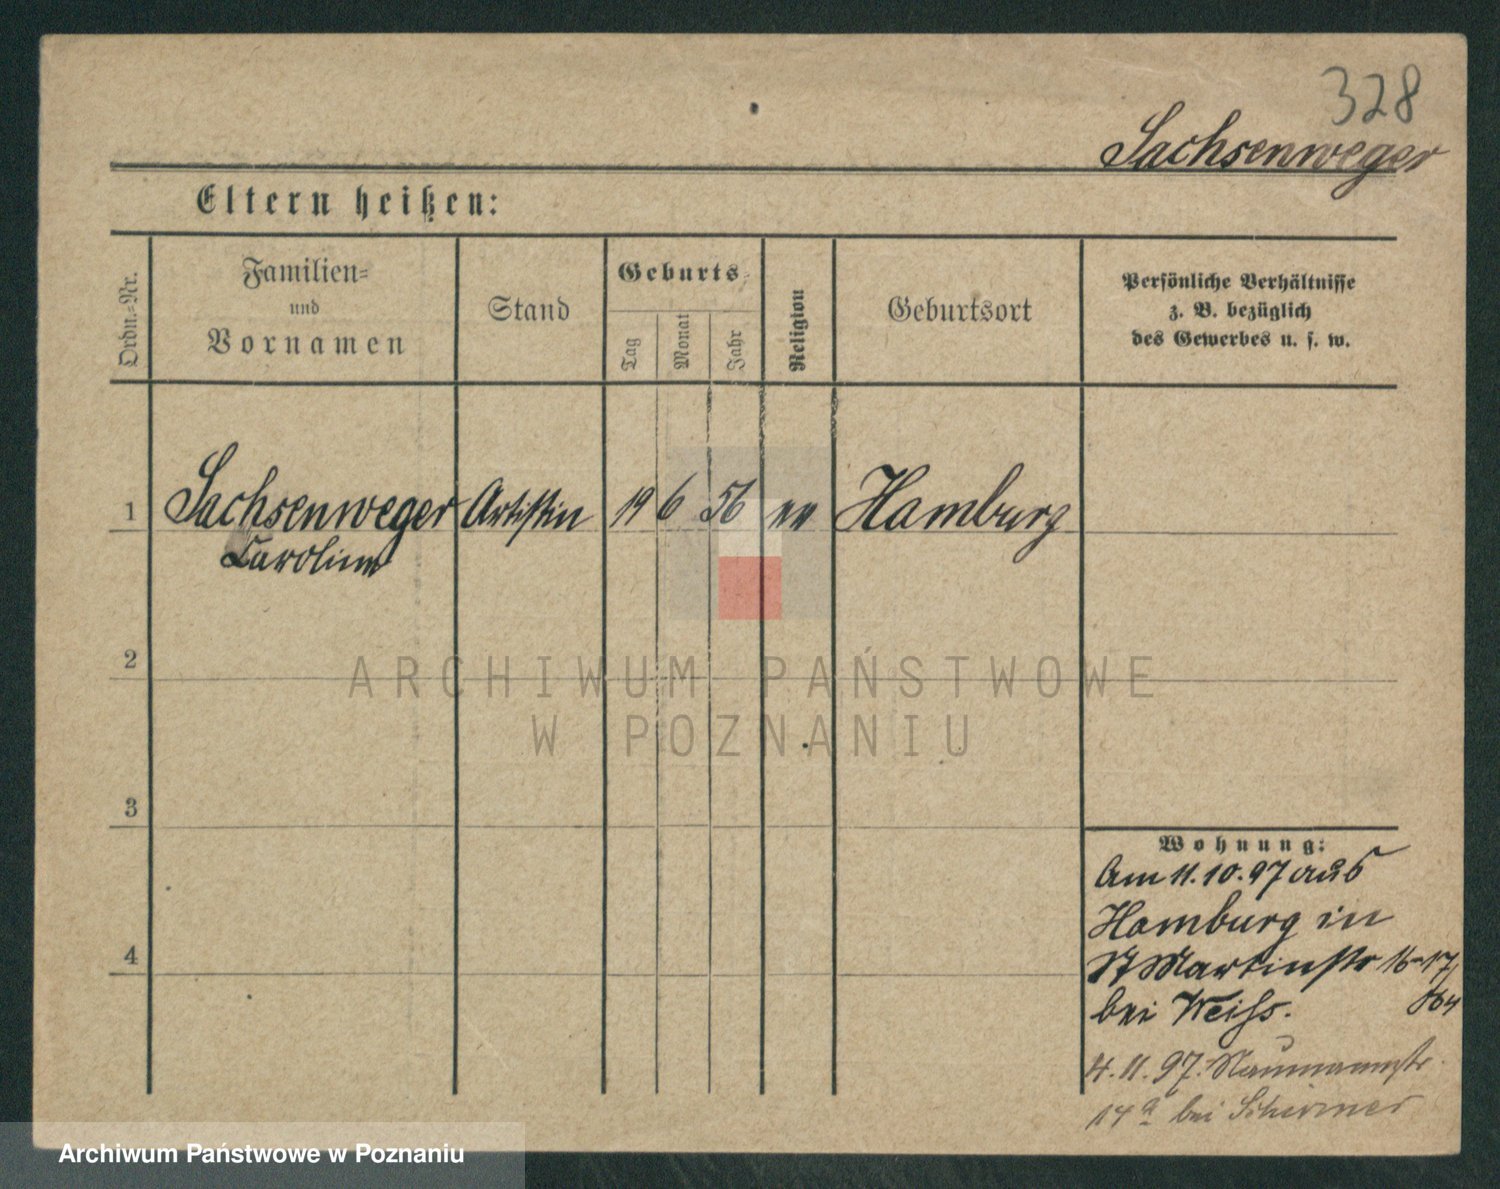 328
Sachsenweger
Eltern heißen:
Ordn.=Nr.
Familien=
und
Vornamen
Stand
Geburts=
Tag
Monat
Jahr
Religion
Geburtsort
Persönliche Verhältnisse
z. B. bezüglich
des Gewerbes u. s. w.
1 Sachsenweger Artistin 19 6 56 ev Hamburg
Carolina
2
ARCHIWUM PAŃSTWOWE
W POZNANIU
3
Wohnung:
Am 11.10.97 aus
Hamburg in
St Martinstr 16-17
bei Weiss.
4
4.11.97. Naumannstr.
14a bei Schirmer
Archiwum Państwowe w Poznaniu